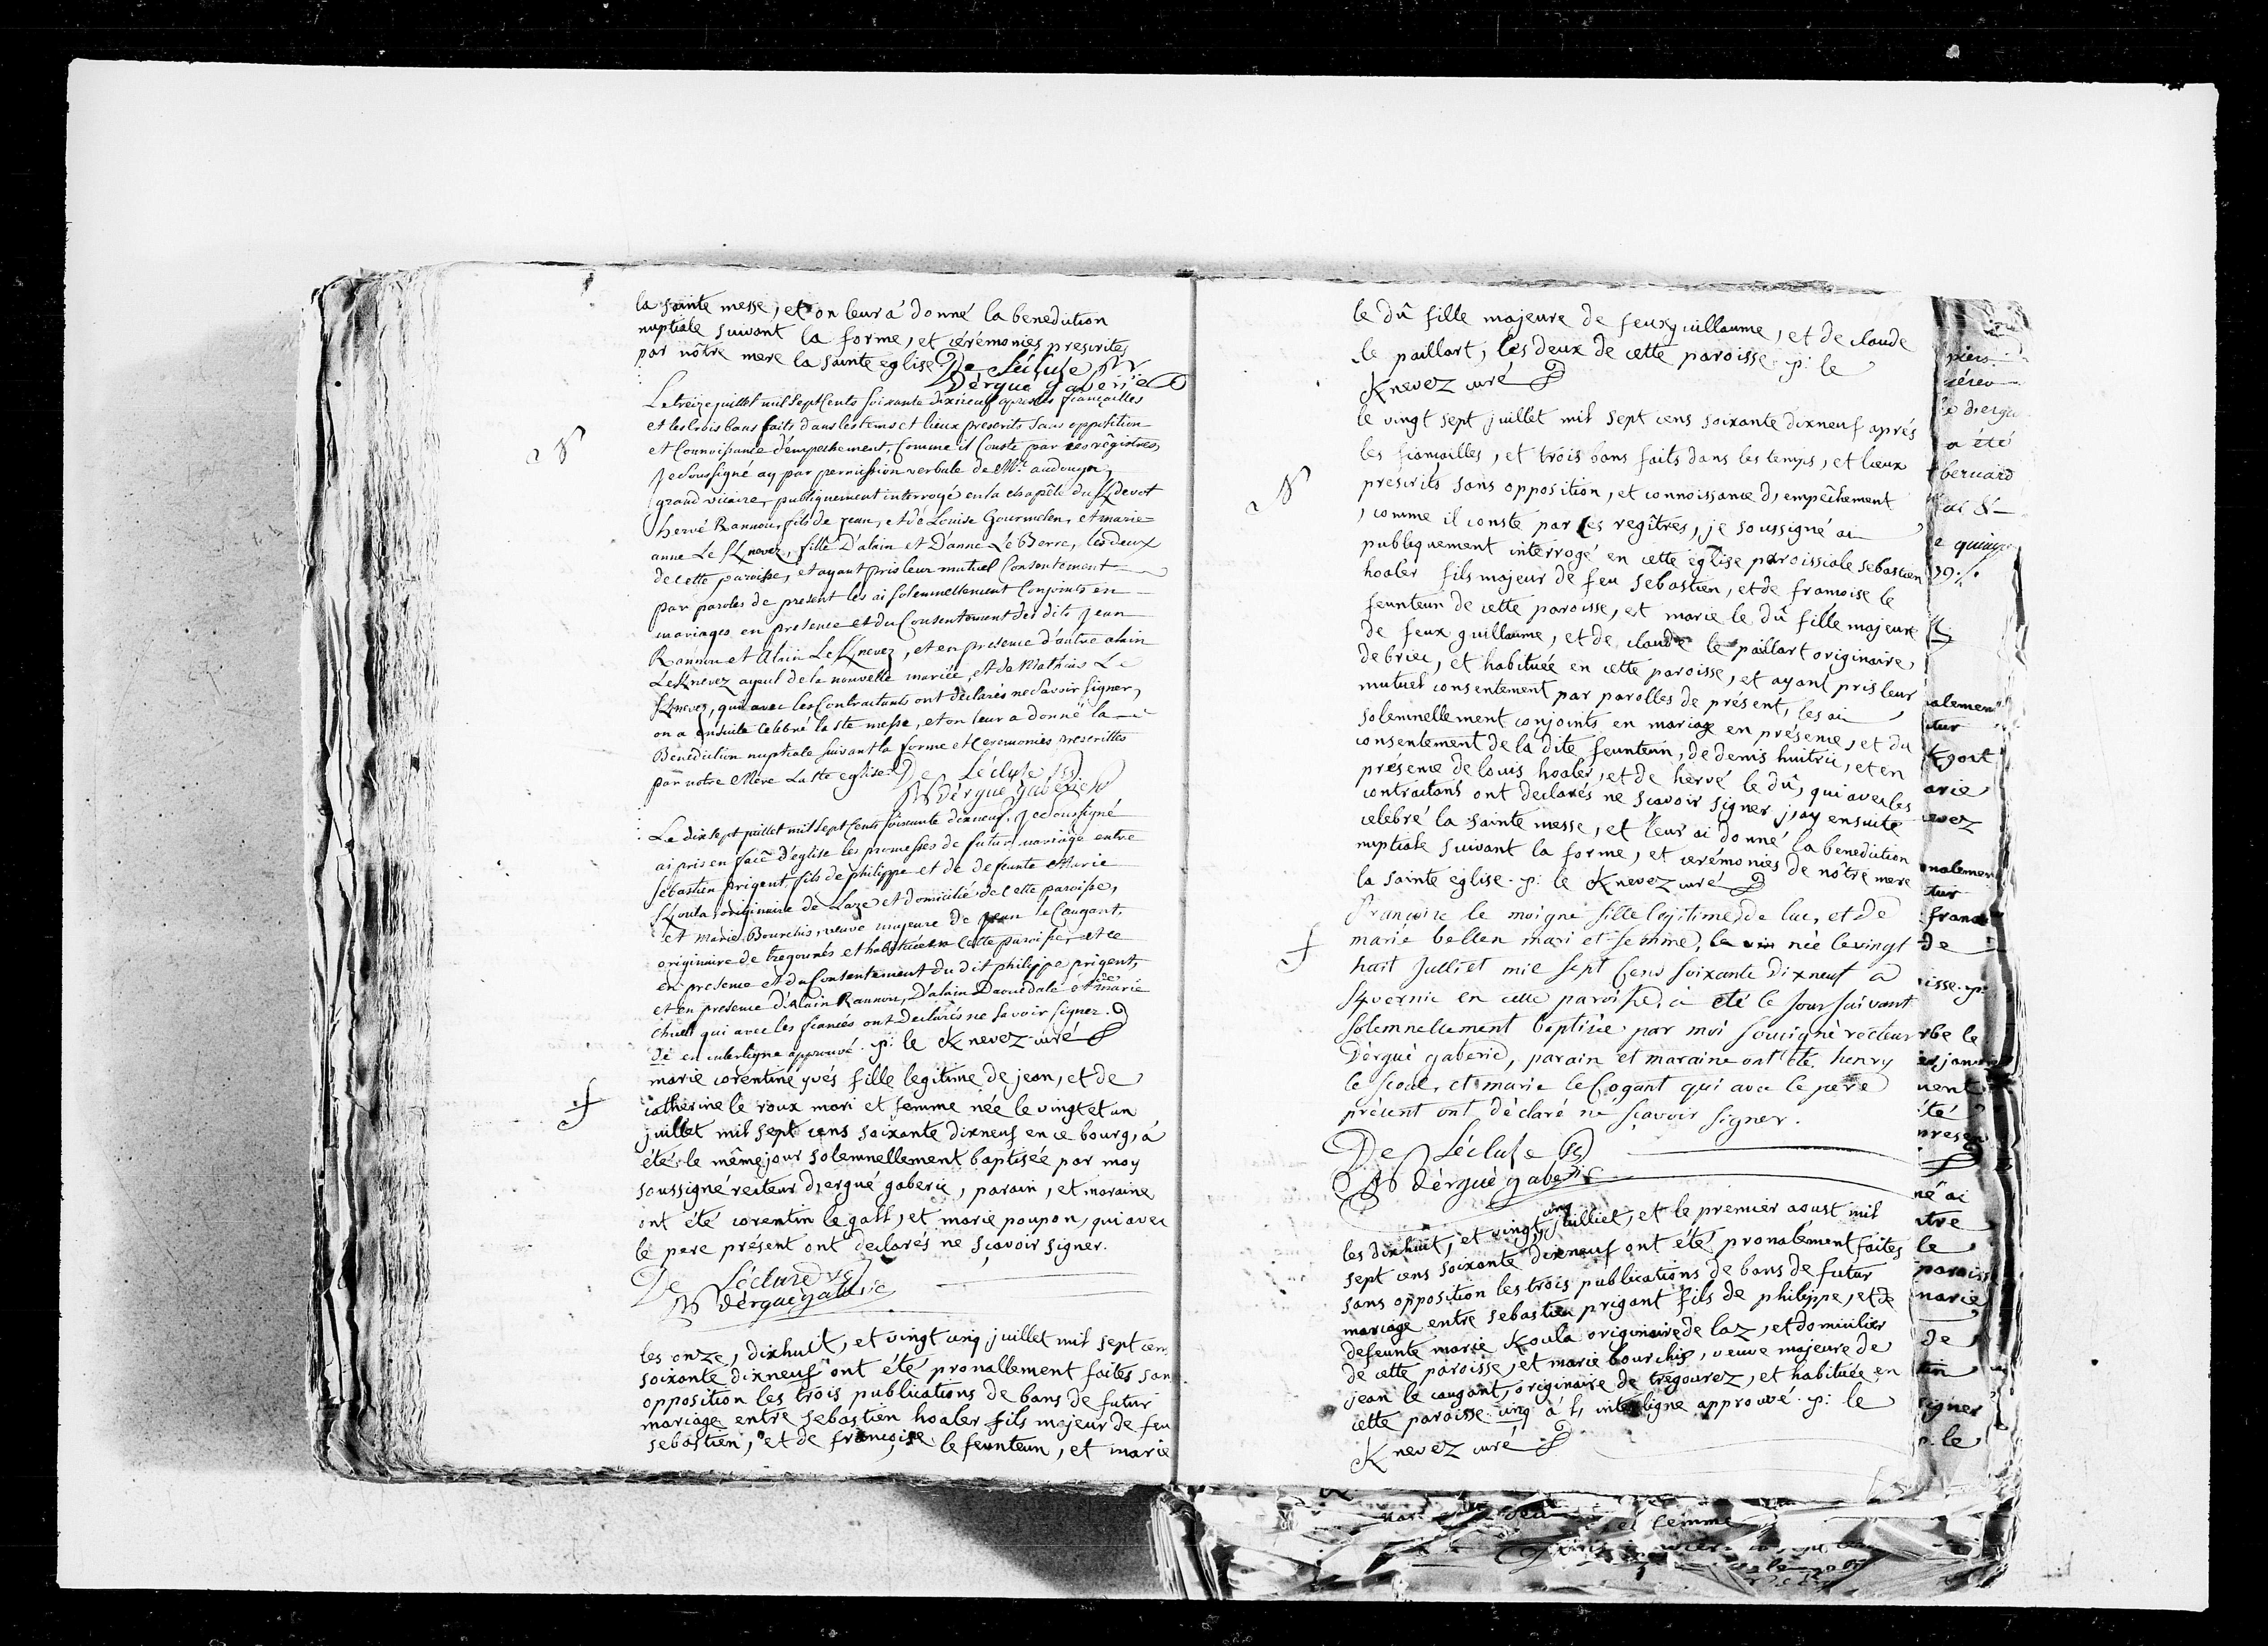 la sainte messe, et on leur a donné la benediction
nuptiale suivant la forme, et cérémonies prescrites
par nôtre mere la sainte eglise. De Lécluse
Dérgué gaberic
Le treize juillet mil sept cents soixante dixneuf apres les fiançailles
et les trois bans faits dans les tems et lieux prescrits sans opposition
et Connoissance d'empechement, Comme il Conste par les régistres,
Je soussigné ay par permission verbale de Mr. audouyn,
grand vicaire, publiquement interrogé en la chapêle du Kdevot
hervé Rannou, fils de jean, et de Louise Gourmelen, et marie
anne Le Knevez, fille D'alain et D'anne Le Berre, les deux
de cette paroisse, et ayant pris leur mutuel Consentement
par paroles de present les ai solemnellement Conjoints en
mariages en presence et du Consentement des dits Jean
Rannou et Alain Le Knevez, et en presence d'autre alain
Le Knevez ayeul de la nouvelle mariée, et de Mathias Le
Knevez, qui avec les Contractants ont déclarés ne savoir signer,
on a ensuite Célébré la ste messe, et on leur a donné la
Bénédiction nuptiale suivant la forme et Ceremonies prescrittes
par notre Mere La ste eglise. De Lécluse
dérgué gaberic
Le dix sept juillet mil sept Cents soixante dixneuf. Je soussigné
ai pris en face d'eglise les promesses de futur mariage entre
sébastien prigent, fils de philippe et de defeunte Marie
Koula, originaire de Laze et domicilié de Cette paroisse,
et Marie Bourchis, veuve majeure de jean le Caugant,
originaire de tregourés et habituée en Cette paroisse, et ce
en presence et du Consentement du dit philippe prigent,
et en presence d'Alain Rannou, D'alain Daouedale et de marie
chuto qui avec les fiancés ont Déclarés ne savoir signer.
de en interligne approuvé. p: le Knevez curé
marie corentine yvés fille legitime de jean, et de
catherine le roux mari et femme née le vingt et un
juillet mil sept cens soixante dixneuf en ce bourg, a
été le même jour solemnellement baptisée par moy
soussigné recteur d'ergué gaberic, parain, et maraine
ont été corentin le gall, et marie poupon, qui avec
le pere présent ont declarés ne sçavoir signer.
De Lécluse
dérgué gaberic
les onze, dixhuit, et vingt cinq juillet mil sept cens
soixante dixneuf ont été pronallement faites sans
opposition les trois publications de bans de futur
mariage entre sebastien hoaler fils majeur de feu
sebastien, et de françoise le feunteun, et marie
le dû fille majeure de feux guillaume, et de claude
le paillart, les deux de cette paroisse. p: le
Knevez curé
le vingt sept juillet mil sept cens soixante dixneuf aprés
les fiançailles, et trois bans faits dans les temps, et lieux
prescrits sans opposition, et connoissance d'empêchement
, comme il conste par les regîtres, je soussigné ai
publiquement interrogé en cette église paroissiale sebastien
hoaler fils majeur de feu sebastien, et de françoise le
feunteun de cette paroisse, et marie le dû fille majeure
de feux guillaume, et de claude le paillart originaire
de briec, et habituée en cette paroisse, et ayant pris leur
mutuel consentement par parolles de présent, les ai
solemnellement conjoints en mariage en présence, et du
consentement de la dite feunteun, de denis huitric, et en
présence de louis hoaler, et de hervé le dû, qui avec les
contractans ont declarés ne scavoir signer, j'ay ensuite
celebré la sainte messe, et leur ai donné la benediction
nuptiale suivant la forme, et cerémonies de nôtre mere
la sainte eglise. p: le Knevez curé
Françoise le moigne fille légitime de luc, et de
marie bellen mari et femme, née le vingt
huit Julliet mil sept Cens soixante dixneuf a
Kvernic en cette paroisse, a eté le jour suivant
solemnellement baptisée par moi souigné recteur
d'ergué gaberic, parain et maraine ont été henry
le scoul, et marie le Cogant qui avec le pere
présent ont déclaré ne sçavoir signer.
De Lécluse
dérgué gaberic
cinq
les dixhuit, et vingt juilliet, et le premier aoust mil
sept cens soixante dixneuf ont été pronalement faites
sans opposition les trois publications de bans de futur
mariage entre sebastien prigant fils de philippe, et de
defeunte marie Koula originaire de laz, et domicilier
de cette paroisse, et marie bourchis, veuve majeure de
jean le caugant, originaire de trégourez, et habituée en
cette paroisse. cinq à l'interligne approuvé. p: le
Knevez curé